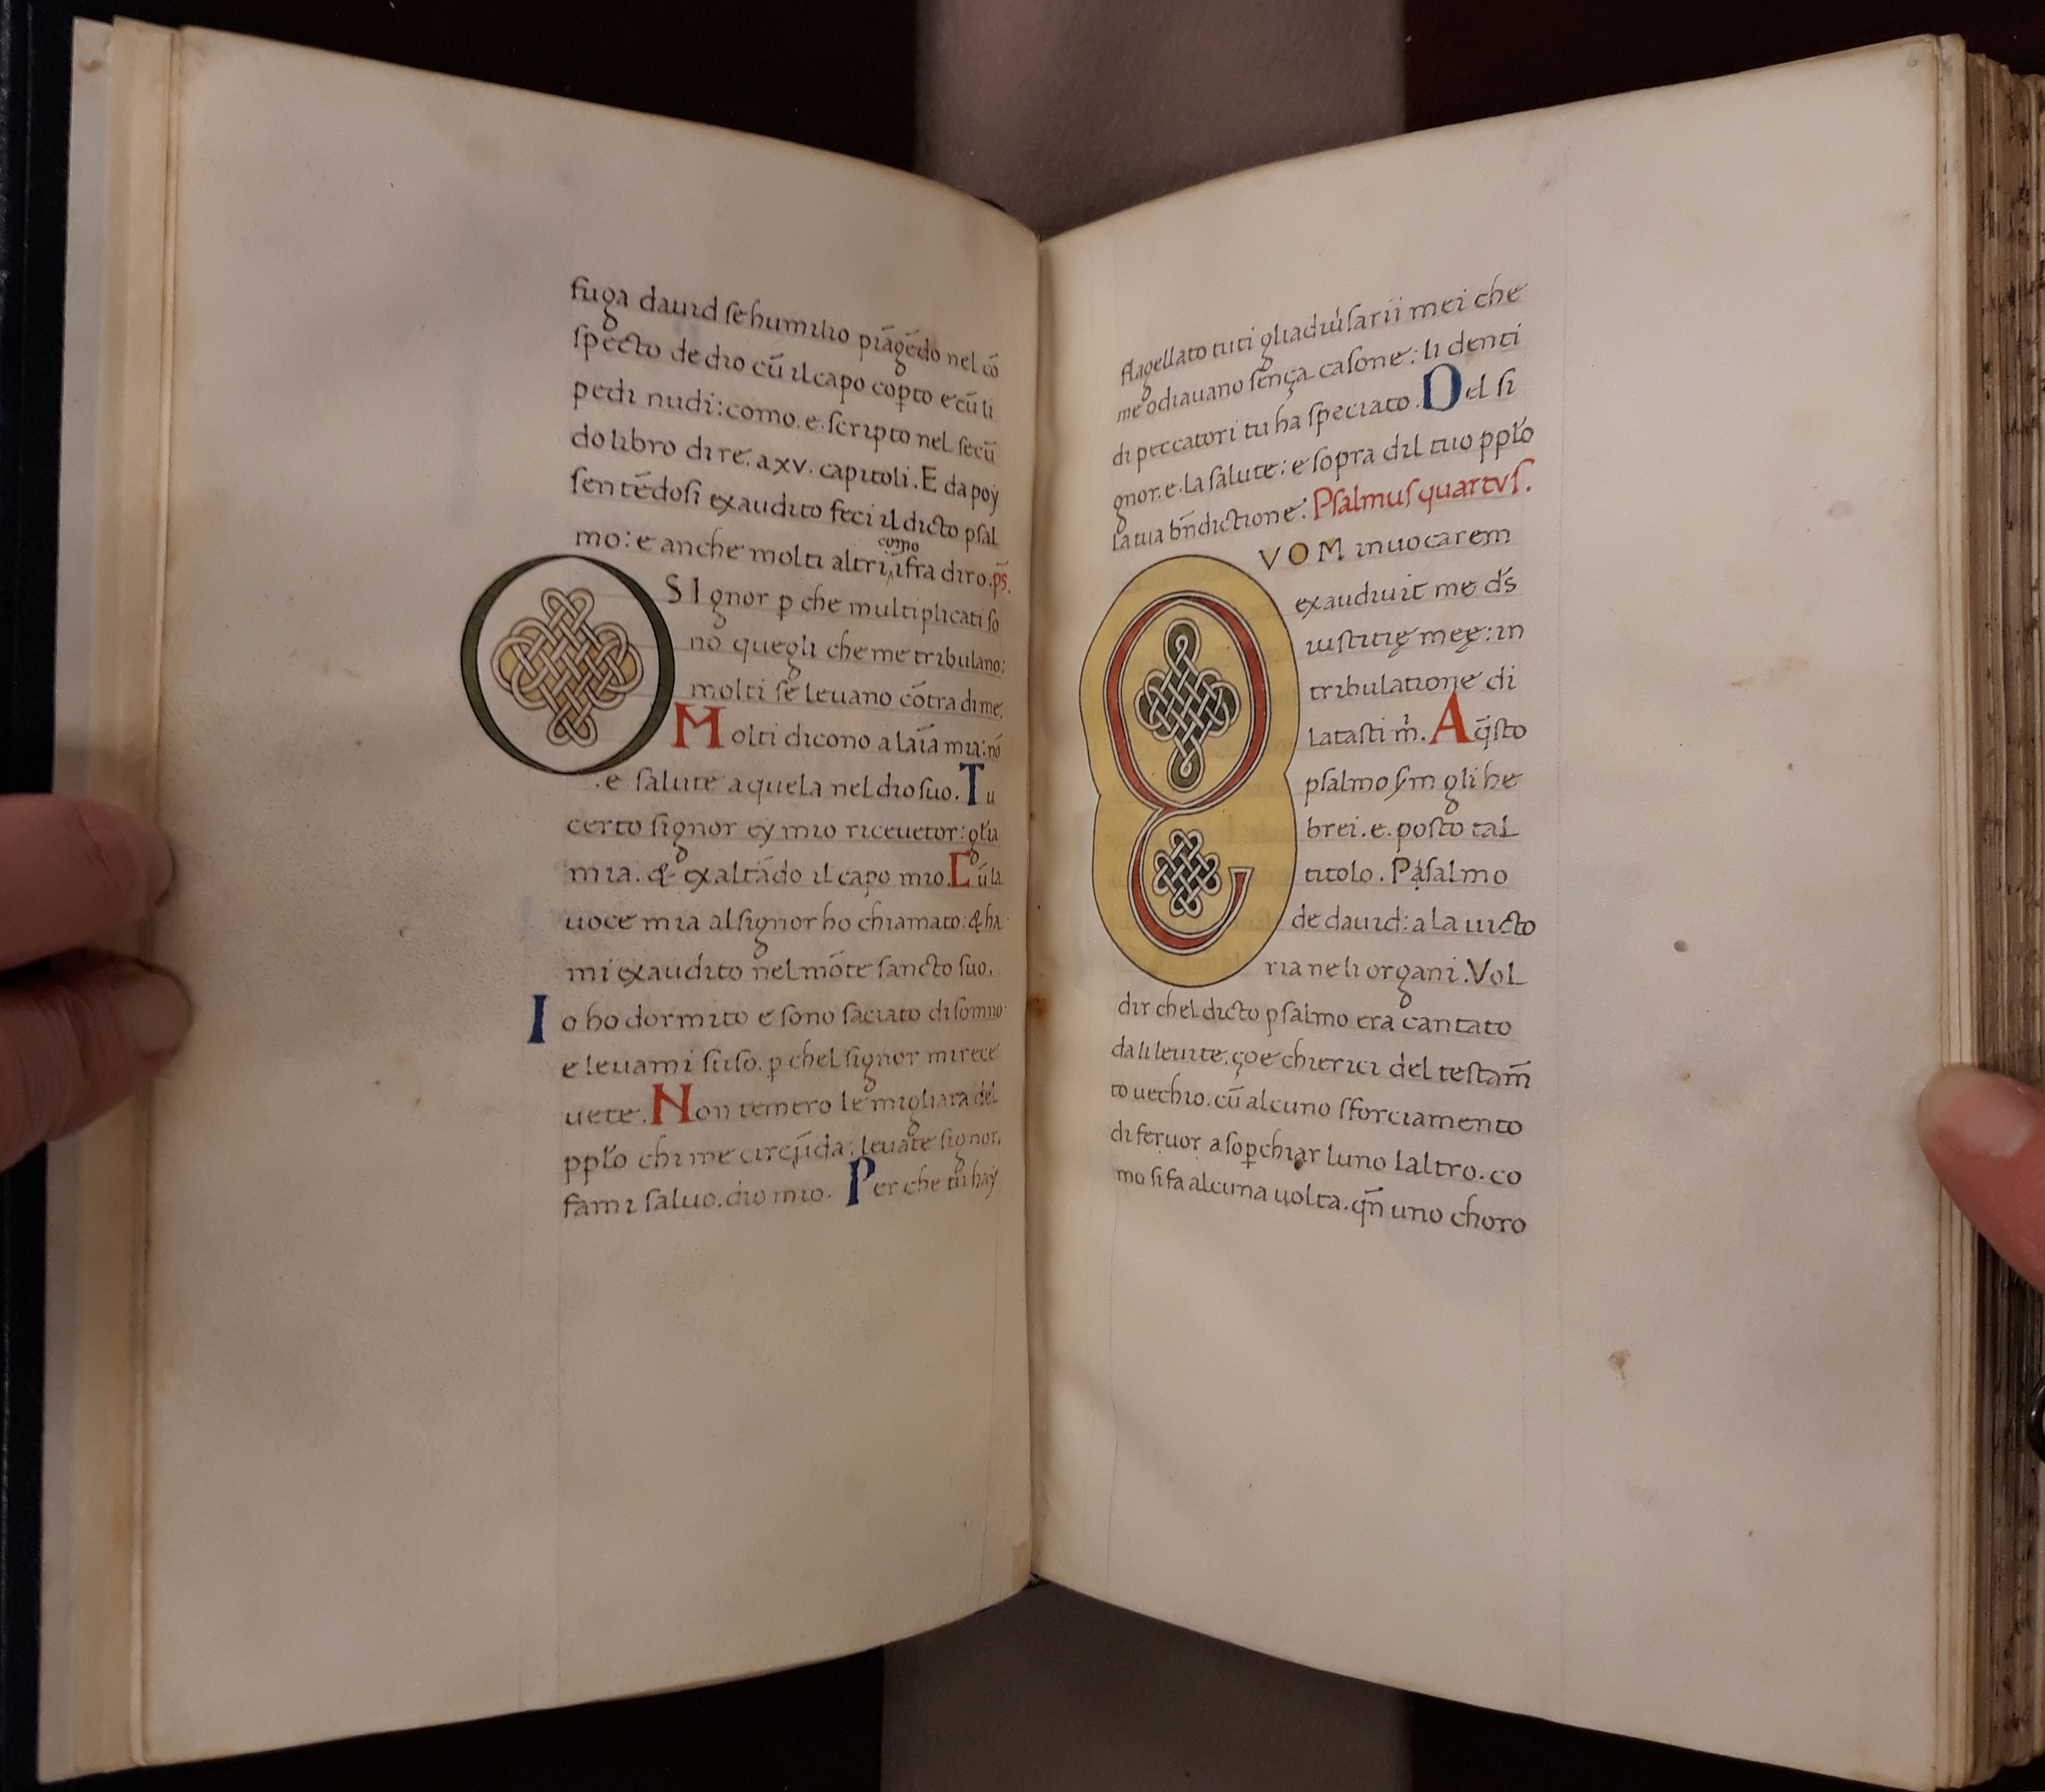 fuga dauid se humilio piāgēdo nel cō
specto de dio cū il capo coꝑto e cū li
pedi nudi: como. e. scripto nel secū
do libro di re. a xv. capitoli. E da poy
sentēdosi exaudito feci il dicto psal
mo: e anche molti altri, como ifra diro. ps̄.
O SIgnor ꝑ che multiplicati so
no quegli che me tribulano:
molti se leuano cōtra di me.
Molti dicono a laīa mia: nō
.e salute a quela nel dio suo. Tu
certo signor ey mio riceuetor: gl̄ia
mia. & exaltādo il capo mio. Cū la
uoce mia al signor ho chiamato: & ha
mi exaudito nel mōte sancto suo.
Io ho dormito e sono saciato di somno:
e leuami suso. ꝑ chel signor mi rece
uete. Non temero le migliara del
ppl̄o chi me circūda: leuate signor.
fami saluo. dio mio. Per che tu hay
flagellato tuti gli aduʼsarii mei che
me odiauano sença casone: li denti
di peccatori tu ha speciato. Del si
gnor. e. la salute: e sopra dil tuo ppl̄o
la tua bn̄dictione. Psalmus quartus.
CVOM inuocarem
exaudiuit me ds̄
iustitię meę: in
tribulatione di
latasti m̄. A q̄sto
psalmo sm gli he
brei. e. posto tal
titolo. Psalmo
de dauid: a la uicto
ria ne li organi. Vol
dir chel dicto psalmo era cantato
da li leuite. çoe chierici del testam̄
to uechio. cū alcuno sforciamento
di feruor a soꝑchiar luno laltro. co
mo si fa alcuna uolta. qn̄ uno choro